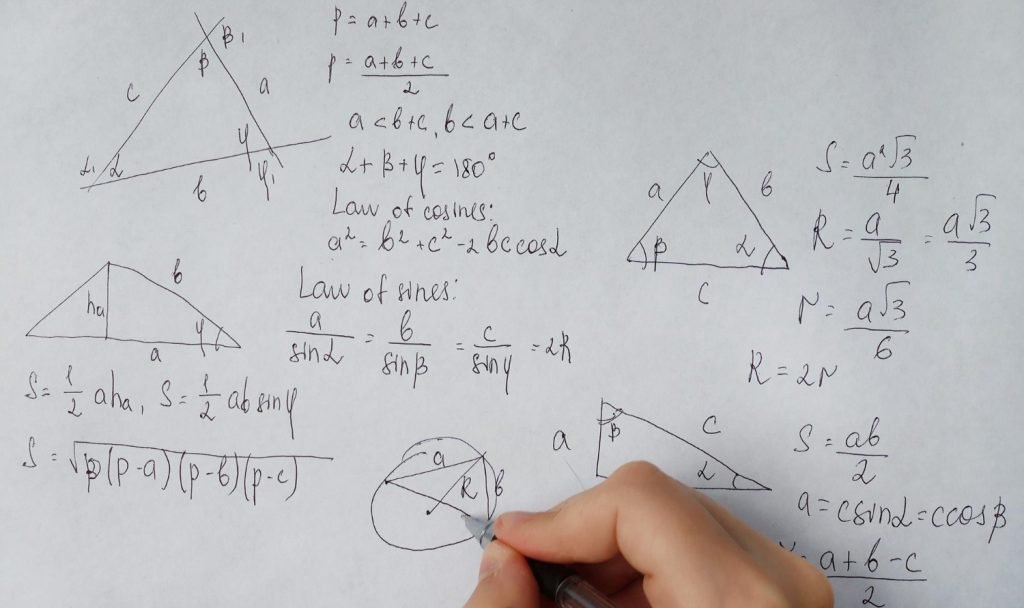 β₁
β
c
a
α₁
α
γ
γ₁
b
P = a+b+c
p = \frac{a+b+c}{2}
a < b+c, b < a+c
α+β+γ = 180°
Law of cosines:
a² = b² + c² - 2bc cosα
Law of sines:
\frac{a}{sinα} = \frac{b}{sinβ} = \frac{c}{sinγ} = 2R
b
hₐ
γ
a
S = \frac{1}{2} ahₐ, S = \frac{1}{2} ab sinγ
S = \sqrt{p(p-a)(p-b)(p-c)}
a
R
b
a
γ
b
β
α
c
S = \frac{a²√3}{4}
R = \frac{a}{√3} = \frac{a√3}{3}
r = \frac{a√3}{6}
R = 2r
a
β
c
α
S = \frac{ab}{2}
a = c sinα = c cosβ
\frac{a+b-c}{2}